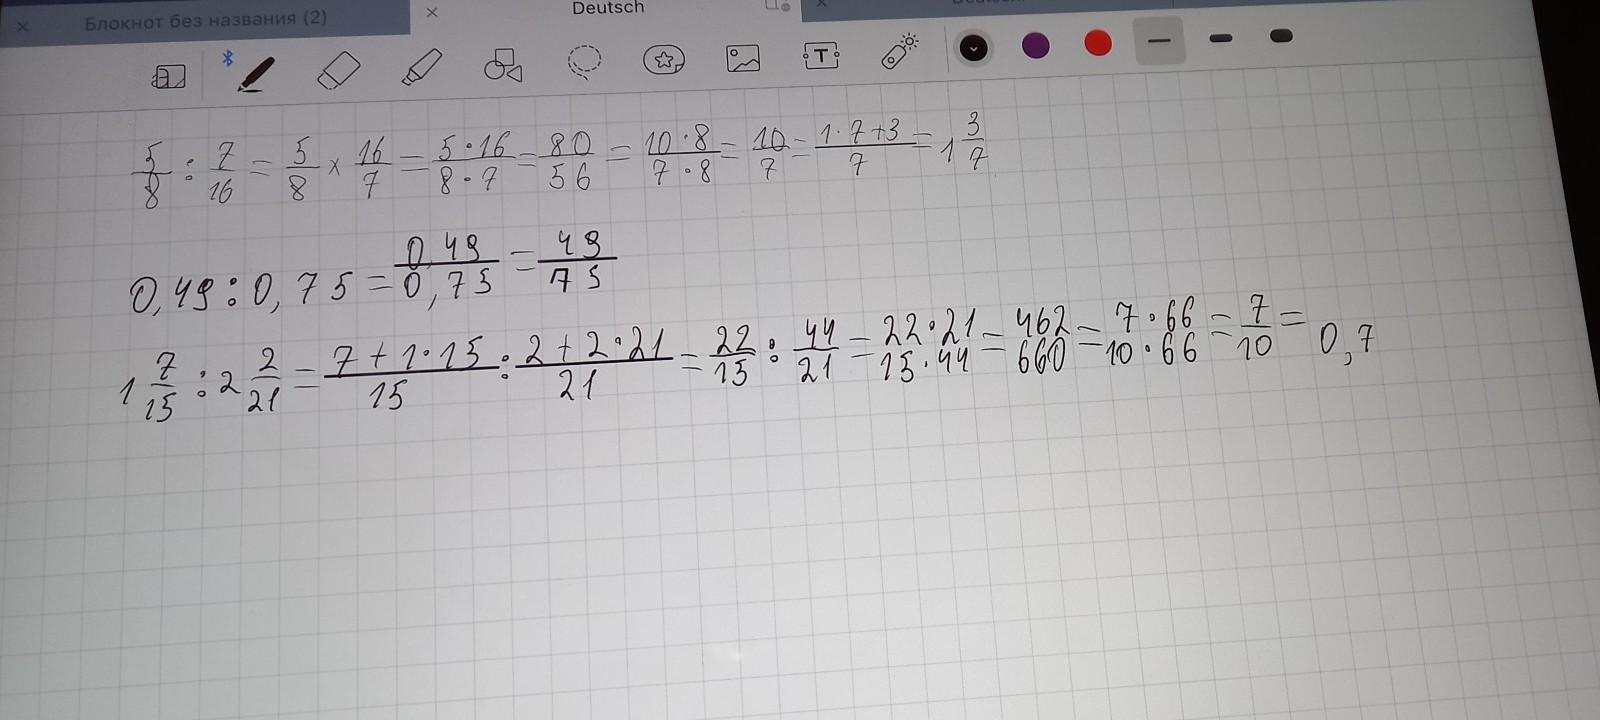 Блокнот без названия (2) Deutsch
5/8 : 7/16 = 5/8 × 16/7 = 5·16/8·7 = 80/56 = 10·8/7·8 = 10/7 = 1·7+3/7 = 1 3/7
0,49 : 0,75 = 0,49/0,75 = 49/75
1 7/15 : 2 2/21 = 7+1·15/15 : 2+2·21/21 = 22/15 : 44/21 = 22·21/15·44 = 462/660 = 7·66/10·66 = 7/10 = 0,7